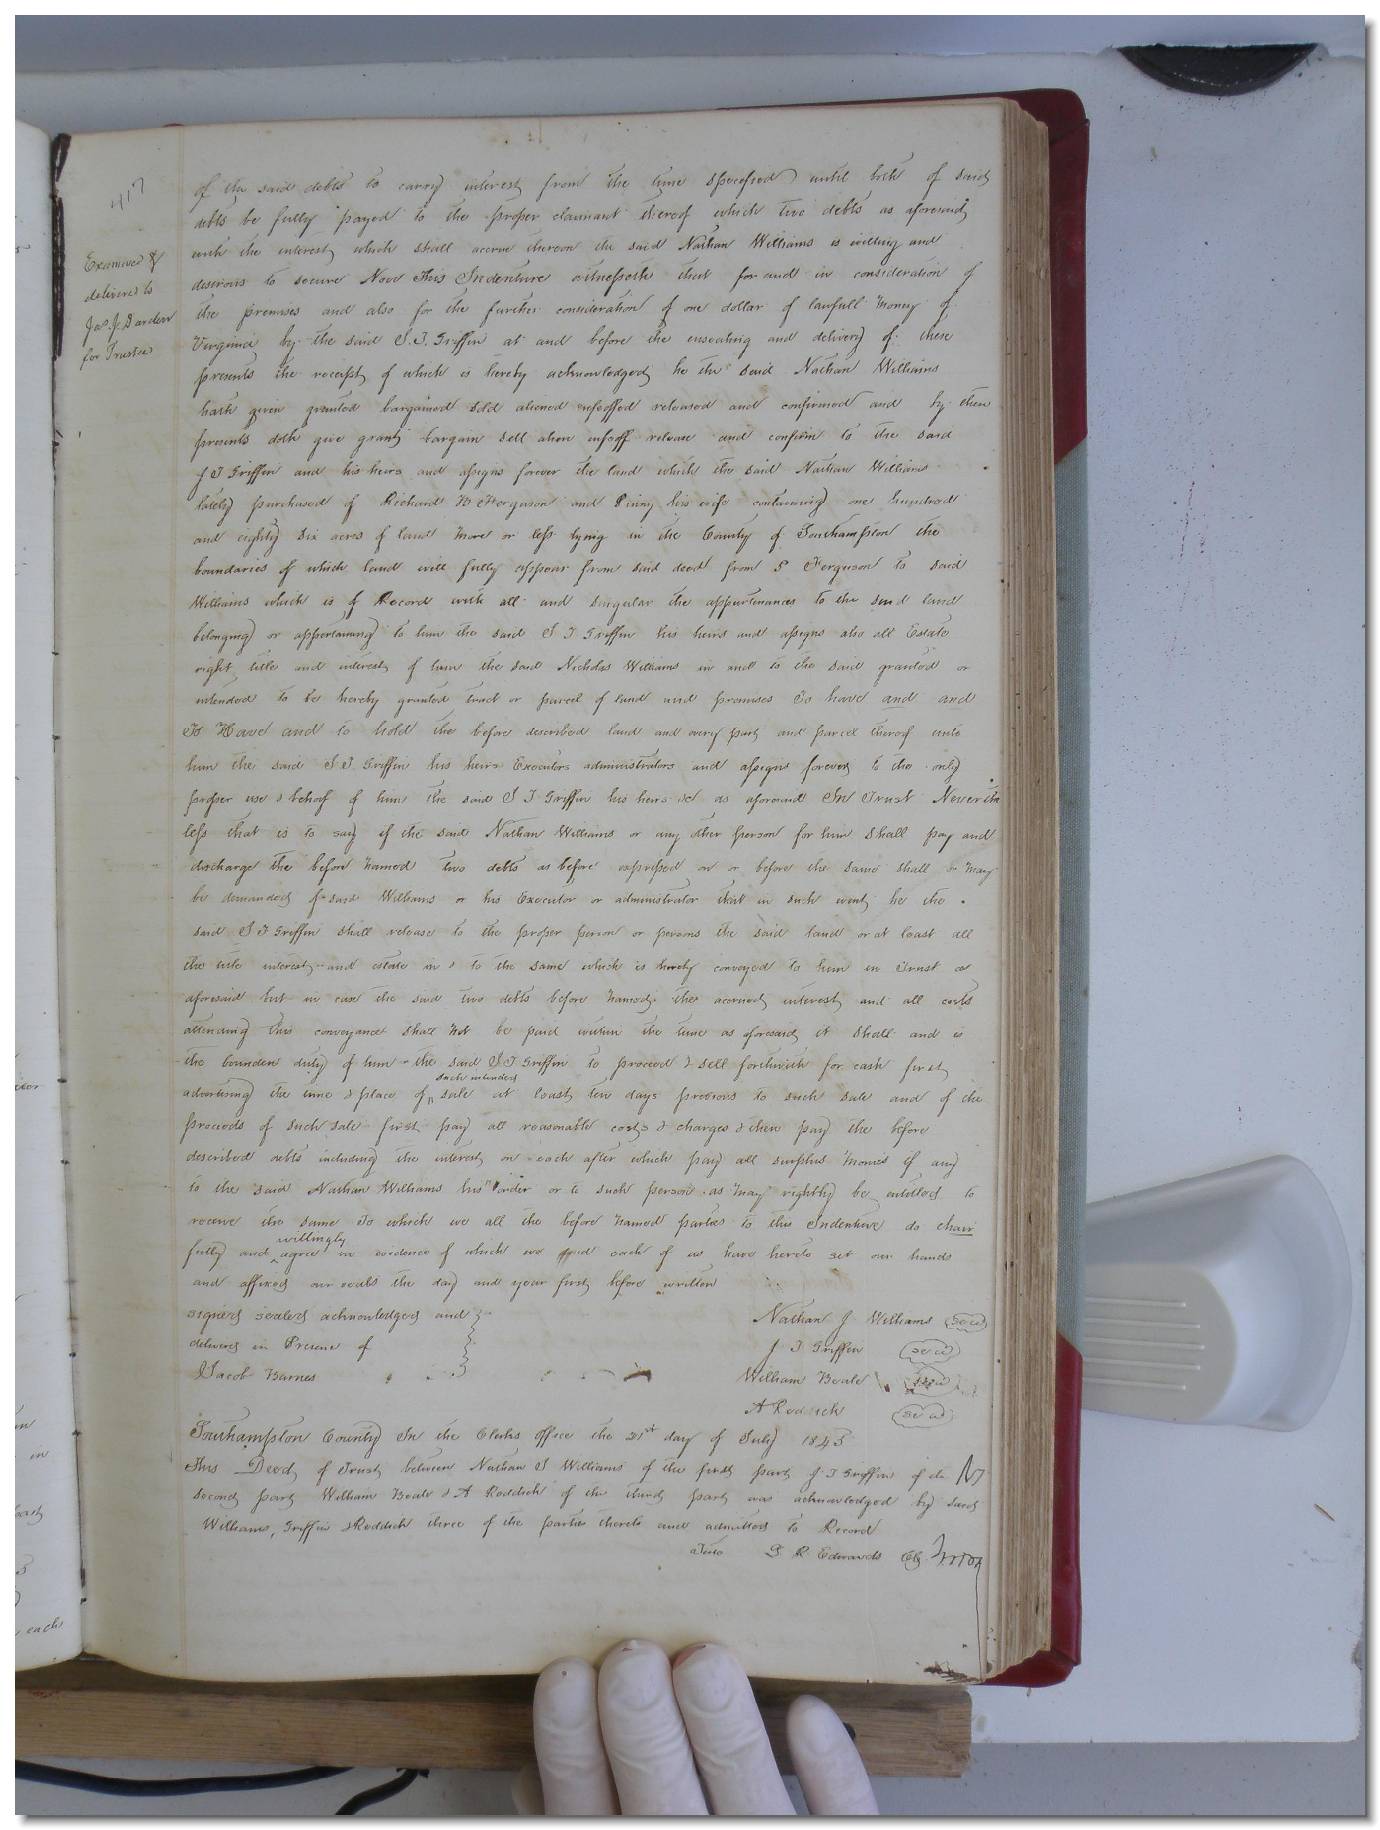 417
Examined &
delivered to
Jas J. Darden
for Trustee
of the said debts to carry interest from the time specified until both of said
debts be fully payed to the proper claimant thereof which two debts as aforesaid
with the interest which shall accrue thereon the said Nathan Williams is willing and
desirous to secure Now This Indenture witnesseth that for and in consideration of
the premises and also for the further consideration of one dollar of lawfull money of
Virginia by the said J. T. Griffin at and before the ensealing and delivery of these
presents the receipt of which is hereby acknowledged he the said Nathan Williams
hath given granted bargained sold aliened enfeoffed released and confirmed and by these
presents doth give grant bargain sell alien enfeoff release and confirm to the said
J T Griffin and his heirs and assigns forever the land which the said Nathan Williams
lately purchased of Richard Ferguson and Pinny his wife containing one hundred
and eighty six acres of land more or less lying in the County of Southampton the
boundaries of which land will fully appear from said deed from Ferguson to said
Williams which is of Record with all and singular the appurtenances to the said land
belonging or appertaining to him the said J T Griffin his heirs and assigns also all Estate
right title and interest of him the said Nicholas Williams in and to the said granted or
intended to be hereby granted tract or parcel of land and premises To have and and
To Have and to hold the before described land and every part and parcel thereof unto
him the said J T Griffin his heirs Executors administrators and assigns forever to the only
proper use & behoof of him the said J T Griffin his heirs &c as aforesaid In Trust Neverthe
less that is to say if the said Nathan Williams or any other person for him shall pay and
discharge the before named two debts as before expressed on or before the same shall or may
be demanded of said Williams or his Executor or administrator that in such event he the
said J T Griffin shall release to the proper person or persons the said land or at least all
the title interest and estate in & to the same which is hereby conveyed to him in Trust as
aforesaid but in case the said two debts before named the accrued interest and all costs
attending this conveyance shall not be paid within the time as aforesaid it shall and is
the bounden duty of him the said J T Griffin to proceed & sell forthwith for cash first
such intended
advertising the time & place of sale at least ten days previous to such sale and of the
proceeds of such sale first pay all reasonable costs & charges & then pay the before
described debts including the interest on each after which pay all surplus monies if any
to the said Nathan Williams his order or to such person as may rightly be entitled to
receive the same To which we all the before named parties to this Indenture do chair
willingly
fully and agree in evidence of which we each of us have hereto set our hands
and affixed our seals the day and year first before written
signed sealed acknowledged and
delivered in Presence of
Jacob Barnes
Nathan J Williams Seal
J T Griffin Seal
William Beale Seal
A Reddick Seal
Southampton County In the Clerks office the 21st day of July 1843
This Deed of Trust between Nathan J Williams of the first part J T Griffin of the
second part William Beale & A Reddick of the third part was acknowledged by said
Williams, Griffin & Reddick three of the parties thereto and admitted to Record
Teste L R Edwards Clk